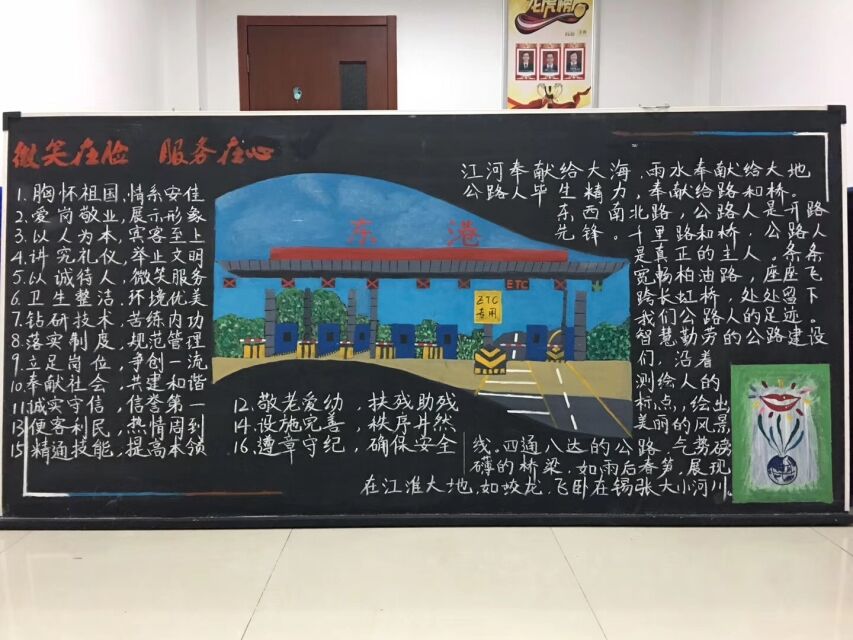 龙虎榜
微笑在脸 服务在心
1.胸怀祖国,情系安佳
2.爱岗敬业,展示形象
3.以人为本,宾客至上
4.讲究礼仪,举止文明
5.以诚待人,微笑服务
6.卫生整洁,环境优美
7.钻研技术,苦练内功
8.落实制度,规范管理
9.立足岗位,争创一流
10.奉献社会,共建和谐
11.诚实守信,信誉第一
13.便客利民,热情周到
15.精通技能,提高本领
12.敬老爱幼,扶残助残
14.设施完善,秩序井然
16.遵章守纪,确保安全
东 港
ETC
ETC
专用
江河奉献给大海,雨水奉献给大地
公路人毕生精力,奉献给路和桥。
东西南北路,公路人是开路
先锋。千里路和桥,公路人
是真正的主人。条条
宽畅柏油路,座座飞
跨长虹桥,处处留下
我们公路人的足迹。
智慧勤劳的公路建设
们,沿着
测绘人的
标点,绘出
美丽的风景
线。四通八达的公路,气势磅
礴的桥梁,如雨后春笋,展现
在江淮大地,如蛟龙,飞卧在锡张大小河川